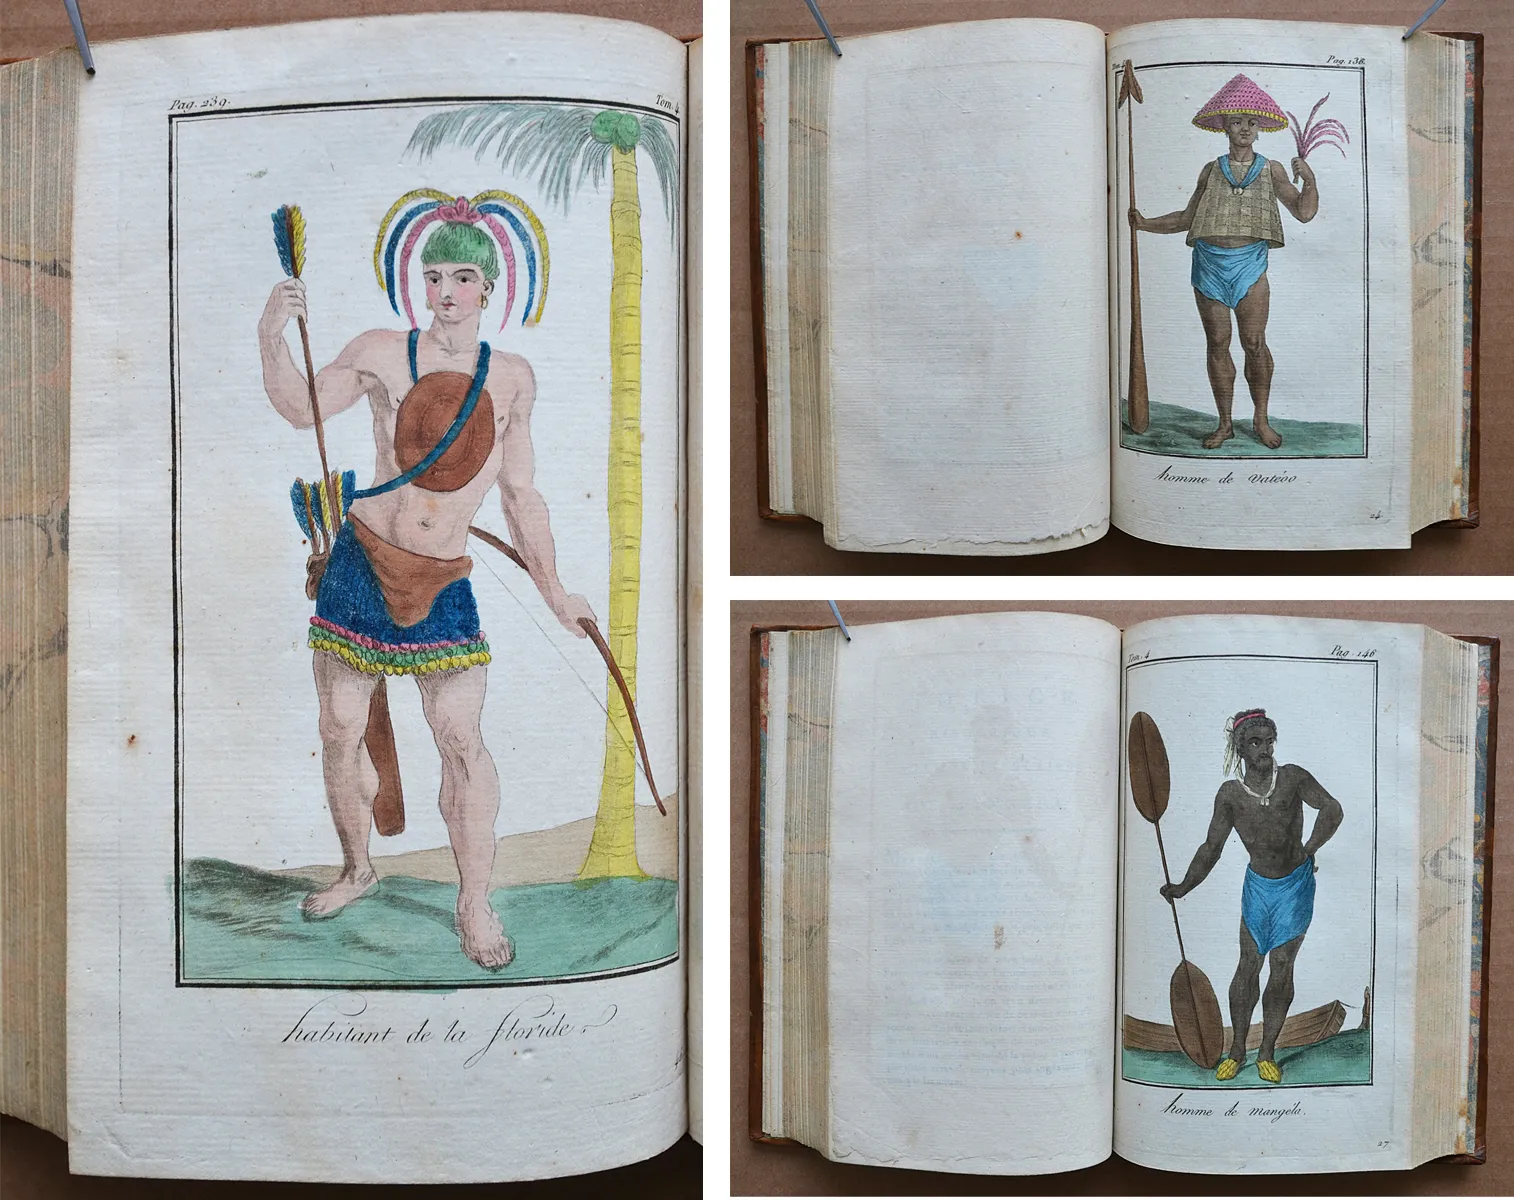 Pag. 239.
Tom. 4
habitant de la floride
Pag. 138.
homme de Vatéoo
24
Tom. 4
Pag. 146
homme de mangéla.
27